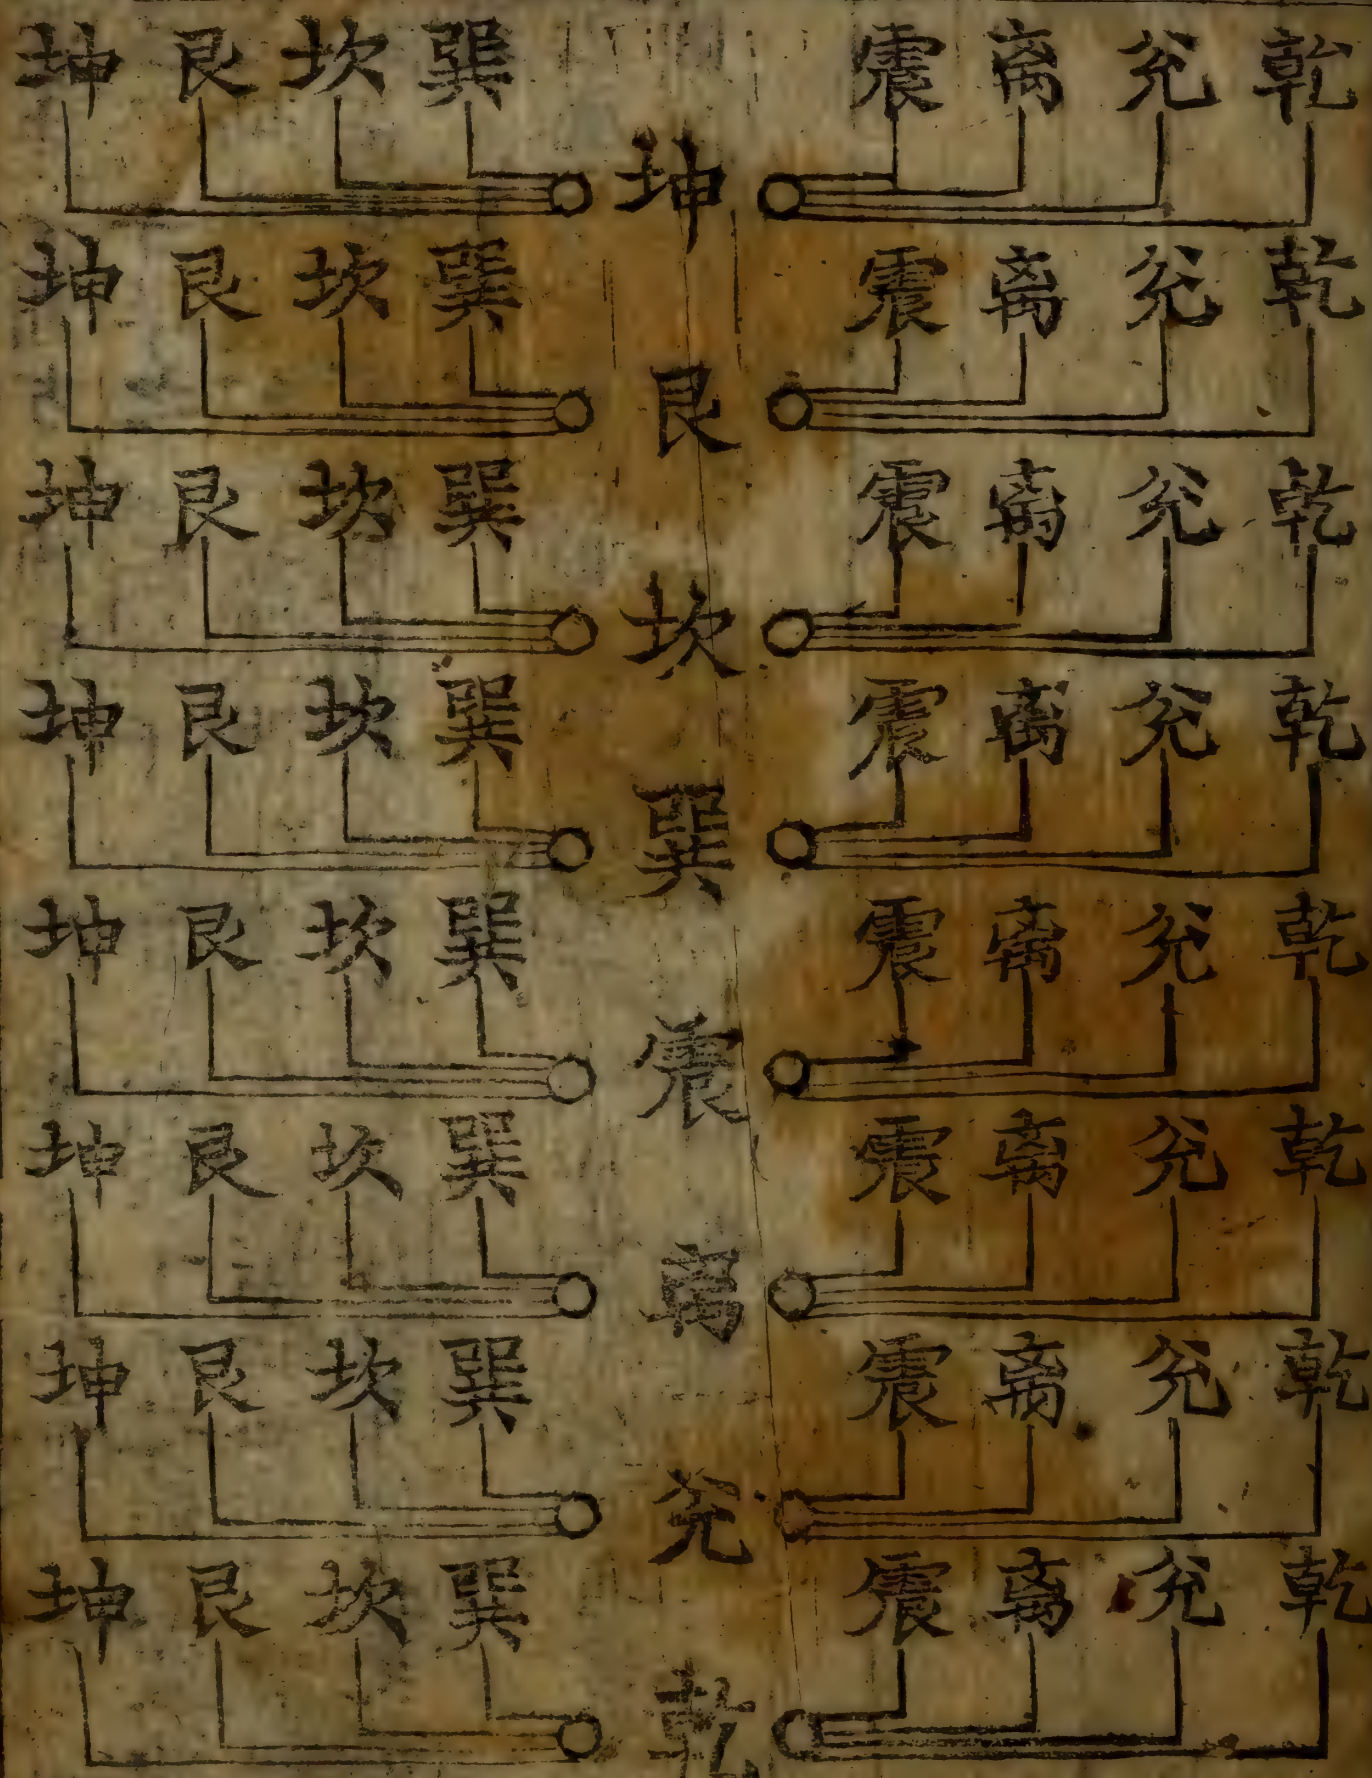 乾兊离震巽坎艮坤
坤
乾兊离震巽坎艮坤
艮
乾兊离震巽坎艮坤
坎
乾兊离震巽坎艮坤
巽
乾兊离震巽坎艮坤
震
乾兊离震巽坎艮坤
离
乾兊离震巽坎艮坤
兊
乾兊离震巽坎艮坤
乾